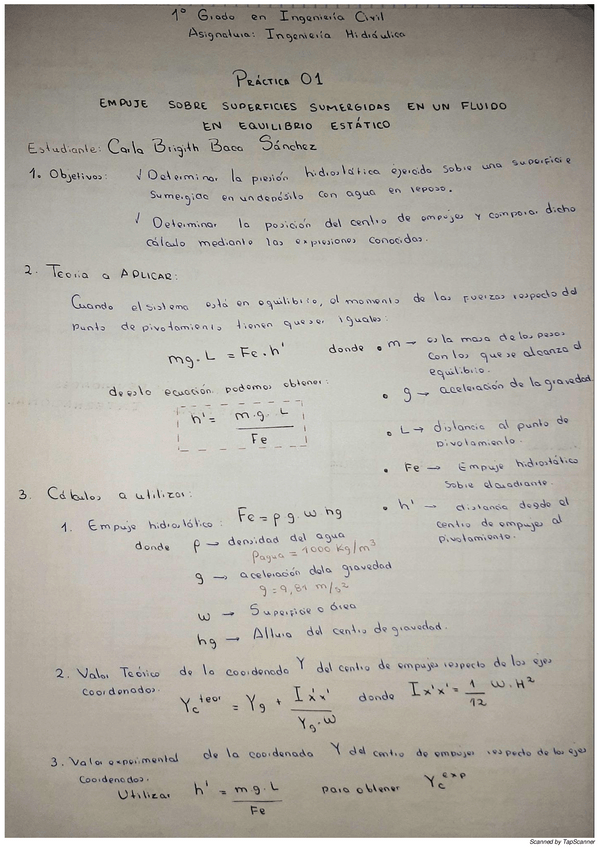 1º Grado en Ingeniería Civil
Asignatura: Ingeniería Hidráulica
PRÁCTICA 01
EMPUJE SOBRE SUPERFICIES SUMERGIDAS EN UN FLUIDO
EN EQUILIBRIO ESTÁTICO
Estudiante: Carla Brigith Baca Sánchez
1. Objetivos: √ Determinar la presión hidrostática ejercida sobre una superficie
sumergida en un depósito con agua en reposo.
√ Determinar la posición del centro de empujes y comparar dicho
cálculo mediante las expresiones conocidas.
2. Teoria a APLICAR:
Cuando el sistema está en equilibrio, el momento de las fuerzas respecto del
punto de pivotamiento tienen que ser iguales:
mg.L = Fe.h' donde • m → es la masa de los pesos
con los que se alcanza el
equilibrio.
de esta ecuación podemos obtener:
• g → aceleración de la gravedad
h' = m.g.L / Fe
• L → distancia al punto de
pivotamiento.
• Fe → Empuje hidrostático
sobre el cuadrante.
• h' → distancia desde el
centro de empujes al
pivotamiento.
3. Cálculos a utilizar:
1. Empuje hidrostático: Fe = ρ g. w hg
donde ρ → densidad del agua
ρagua = 1000 Kg/m³
g → aceleración dela gravedad
g = 9,81 m/s²
w → Superficie o área
hg → Altura del centro de gravedad.
2. Valor Teórico de la coordenada Y del centro de empujes respecto de los ejes
coordenados.
Yc^teor = Yg + Ix'x' / Yg.w donde Ix'x' = 1/12 w.H²
3. Valor experimental de la coordenada Y del centro de empujes respecto de los ejes
coordenados.
Utilizar h' = mg.L / Fe para obtener Yc^exp
Scanned by TapScanner